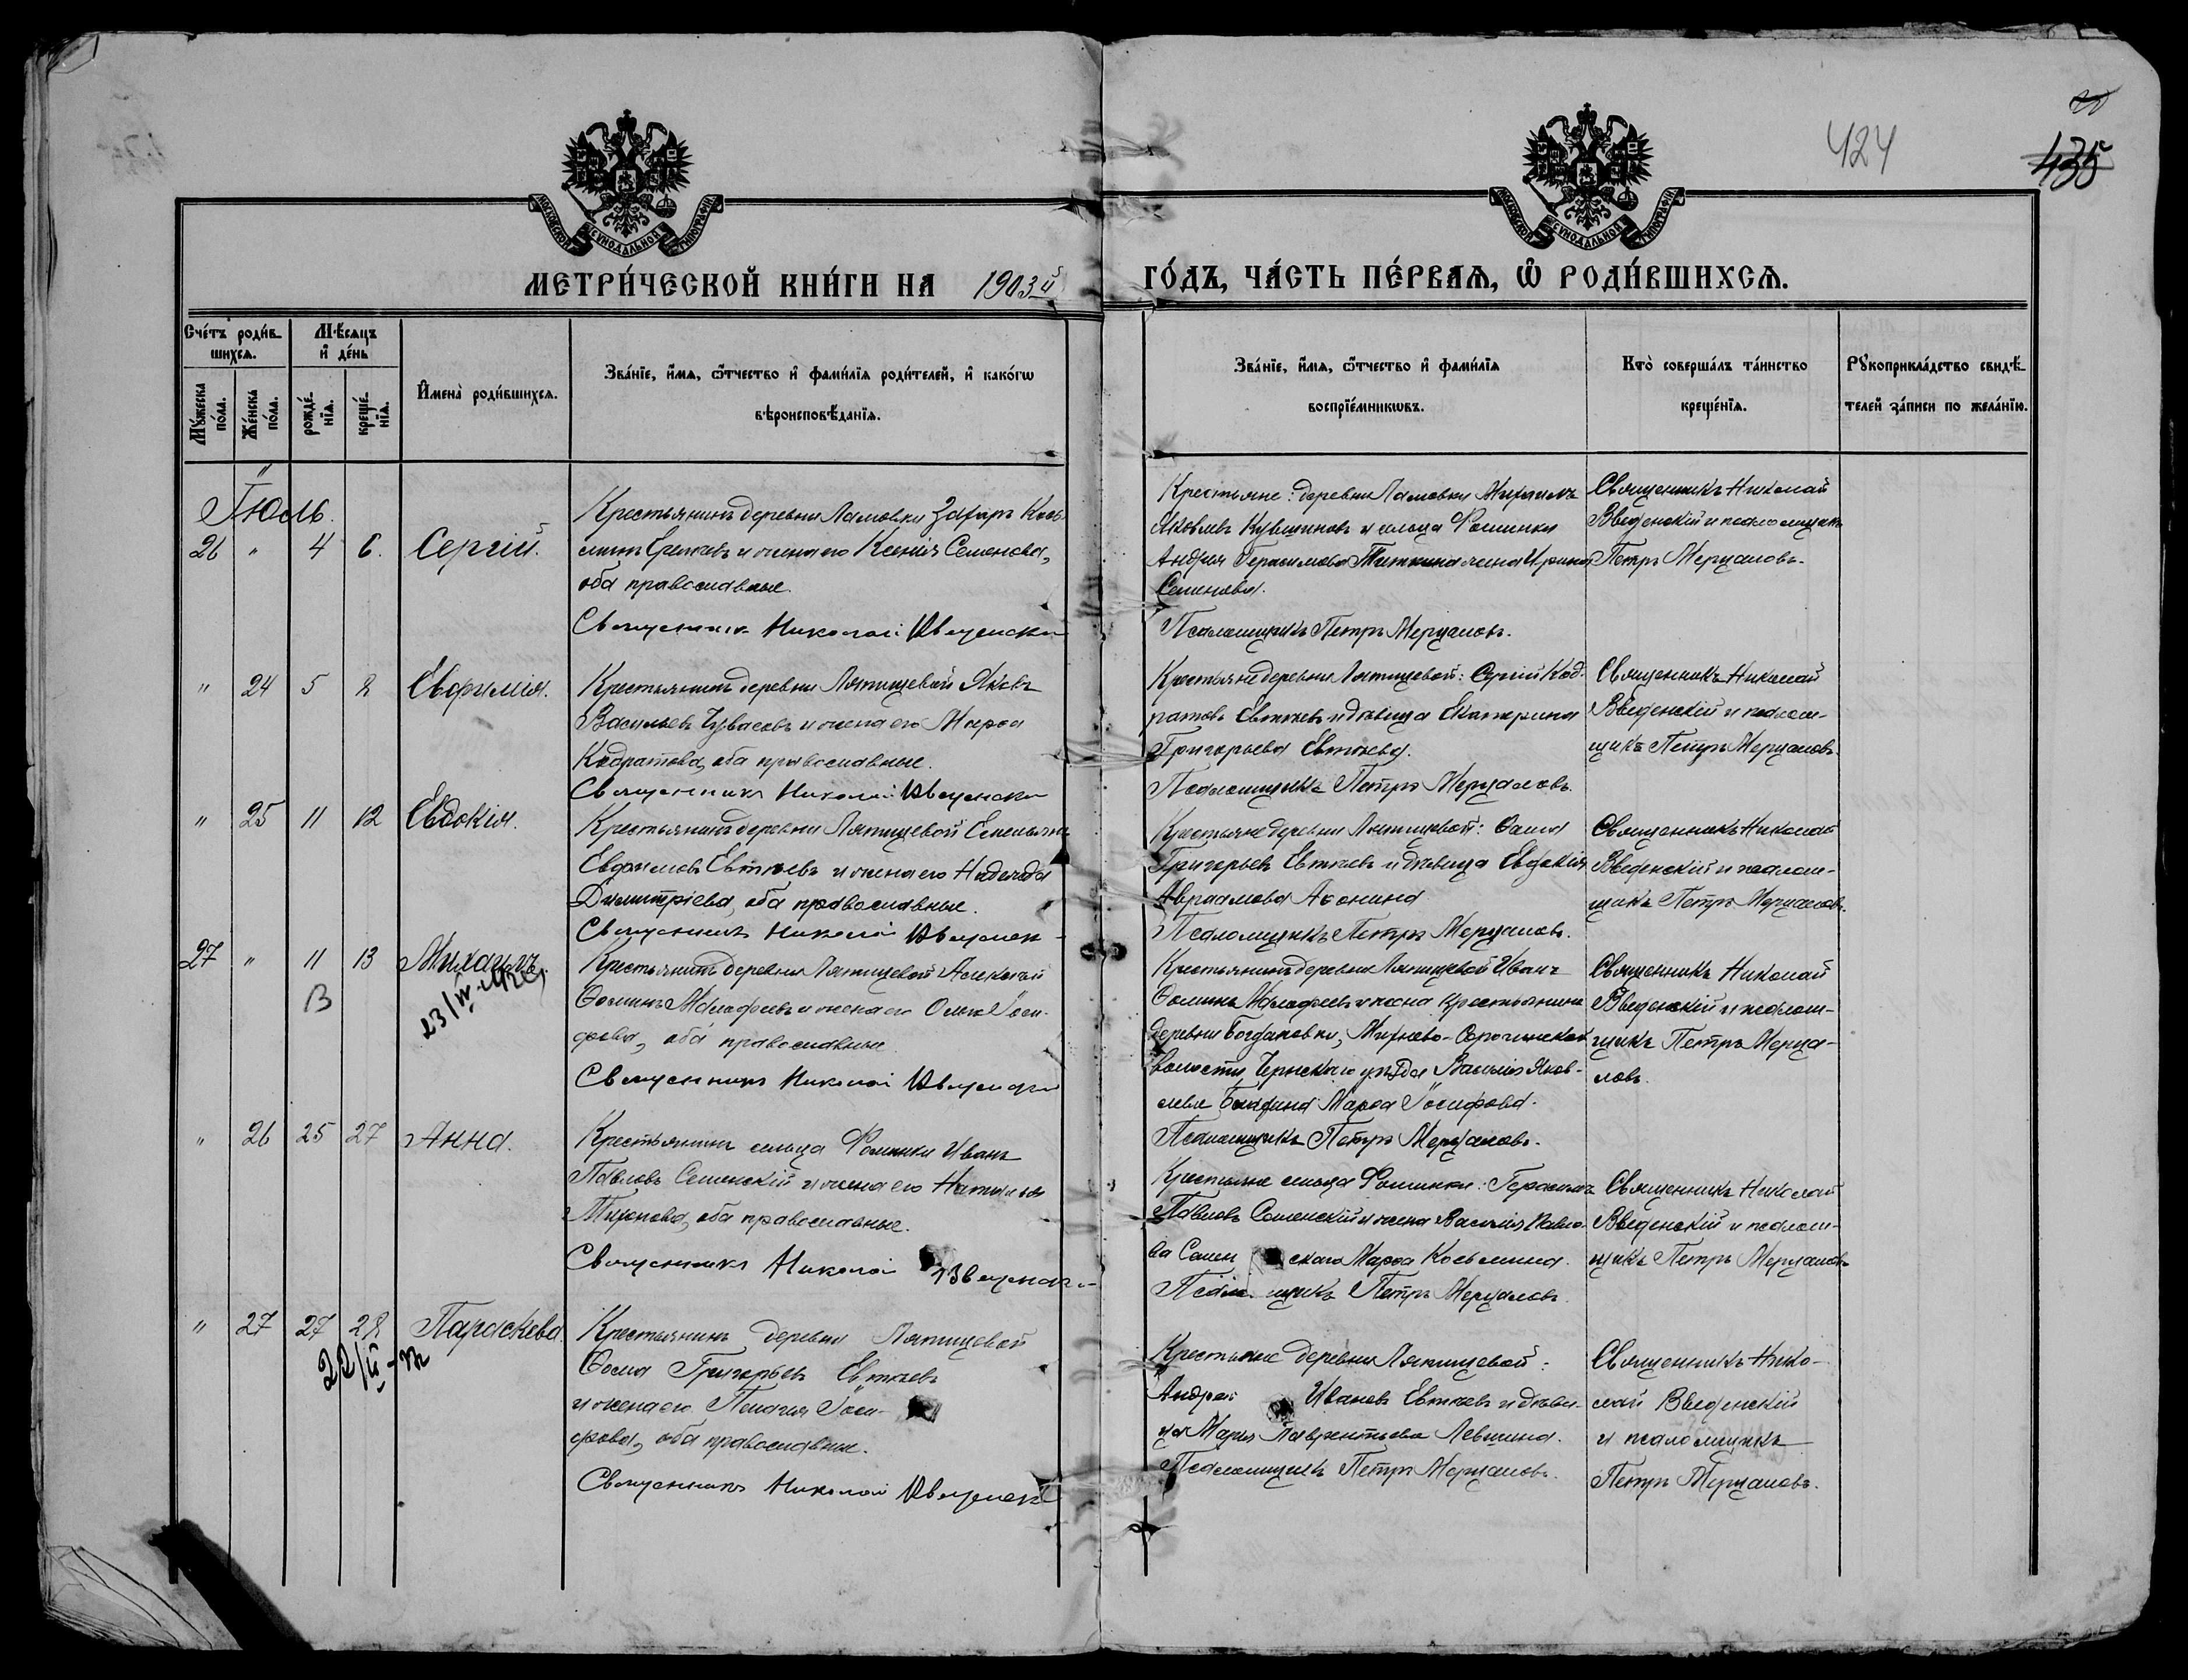 424
435
МОСКОВСКОЙ СѴНОДАЛЬНОЙ ТИПОГРАФІИ
МОСКОВСКОЙ СѴНОДАЛЬНОЙ ТИПОГРАФІИ
МЕТРИ́ЧЕСКОЙ КНИ́ГИ НА 1903й
ГО́ДЪ, ЧА́СТЬ ПЕ́РВАѦ, Ѡ҆ РОДИ́ВШИХСѦ.
Сче́тъ роди́в-
шихсѧ.
Мꙋ́жеска по́ла.
Же́нска по́ла.
Мѣ́сѧцъ
и҆ де́нь
рожде́-
нїѧ.
креще́-
нїѧ.
И҆мена̀ роди́вшихсѧ.
Зва́нїе, и҆́мѧ, ѻ҆́тчество и҆ фами́лїѧ роди́телей, и҆ како́гѡ
вѣроисповѣ́данїѧ.
Зва́нїе, и҆́мѧ, ѻ҆́тчество и҆ фами́лїѧ
воспрїе́мникѡвъ.
Кто̀ соверша́лъ та́инство
креще́нїѧ.
Рꙋкоприкла́дство свидѣ́-
телей за́писи по жела́нїю.
Іюль.
26 " 4 6. Сергій.
Крестьянинъ деревни Ламовки Захаръ Козь-
минъ и жена его Ксенія Семенова,
оба православные.
Священникъ Николай Введенскій
Крестьяне: деревни Ламовки Михаилъ
Яковлевъ Кувшиновъ и сельца Фоминки
Андрея Герасимова жена Ирина
Семенова.
Псаломщикъ Петръ Мерцаловъ.
Священникъ Николай
Введенскій и псаломщикъ
Петръ Мерцаловъ.
" 24 5 8 Евфимія.
Крестьянинъ деревни Лятищевой Яковъ
Васильевъ и жена его Марѳа
Кодратова, оба православные.
Священникъ Николай Введенскій
Крестьяне деревни Лятищевой: Сергій Код-
ратовъ Евтѣевъ и дѣвица Екатерина
Григорьева Евтѣева.
Псаломщикъ Петръ Мерцаловъ.
Священникъ Николай
Введенскій и псалом-
щикъ Петръ Мерцаловъ.
" 25 11 12 Евдокія.
Крестьянинъ деревни Лятищевой Емельянъ
Евфимовъ Евтѣевъ и жена его Надежда
Димитріева, оба православные.
Священникъ Николай Введенск
Крестьяне деревни Лятищевой: Ѳома
Григорьевъ Евтѣевъ и дѣвица Евдокія
Авраамова Аѳонина
Псаломщикъ Петръ Мерцаловъ.
Священникъ Николай
Введенскій и псалом-
щикъ Петръ Мерцаловъ.
27 " 11 13 Михаилъ.
В
Крестьянинъ деревни Лятищевой Алексѣй
Ѳоминъ и жена его Ольга Іоси-
фова, оба православные
Священникъ Николай Введенск
Крестьянинъ деревни Лятищевой Иванъ
Ѳоминъ и жена крестьянина
деревни Богдановки, Михнево-Сорочинской
волости, Чернскаго уѣзда Василія Яков-
лева Марѳа Іосифова.
Псаломщикъ Петръ Мерцаловъ.
Священникъ Николай
Введенскій и псалом-
щикъ Петръ Мерца-
ловъ.
" 26 25 27 Анна.
Крестьянинъ сельца Фоминки Иванъ
Павловъ Семенскій и жена его Наталья
оба православные.
Священникъ Николай Введенск
Крестьяне сельца Фоминки: Герасимъ
Павловъ Семенскій и жена Василія Павло-
ва Семен скаго Марѳа Козьмина.
Псалом щикъ Петръ Мерцаловъ
Священникъ Николай
Введенскій и псалом-
щикъ Петръ Мерцаловъ
" 27 27 28 Параскева.
Крестьянинъ деревни Лятищевой
Ѳома Григорьевъ Евтѣевъ
и жена его Пелагія Іоси-
фова, оба православные.
Священникъ Николай Введенск
Крестьяне деревни Лятищевой:
Андрей Ивановъ Евтѣевъ и дѣви-
ца Марія Лаврентьева Левшина.
Псаломщикъ Петръ Мерцаловъ.
Священникъ Нико-
лай Введенскій
и псаломщикъ
Петръ Мерцаловъ.